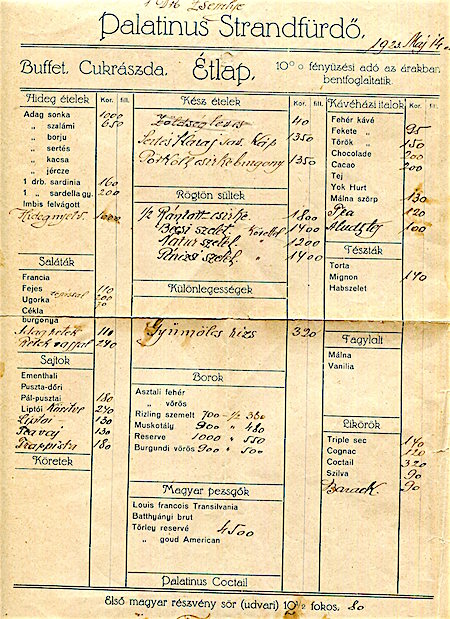 1 Db Zsemlye
Palatinus Strandfürdő.
1923 Maj 14
Buffet. Cukrászda. Étlap. 10% fényüzési adó az árakban bentfoglaltatik.
Hideg ételek Kor. fill.
Adag sonka 1000
„ szalámi 650
„ borju
„ sertés
„ kacsa
„ jércze
1 drb. sardinia 160
1 „ sardella gy. 200
Imbis felvágott
Hidegnyelv 1000
Saláták
Francia
Fejes 110
Ugorka 200
Cékla
burgonya
110
Retek vajjal 240
Sajtok
Ementhali
Puszta-dőri
Pál-pusztai 180
Liptói Köritve 240
Liptoi 130
Teavaj 130
Trappista 180
Köretek
Kész ételek Kor. fill.
Zöldségleves 40
Sertés Karaj sav. Káp 1350
Pörkölt csirke burgony 1350
Rögtön sültek
1/2 Rántott csirke 1800
Bécsi szelet Körettel 1400
Natur szelet „ 1200
Párizsi szelet „ 1400
Különlegességek
Gyümölcs rizs 320
Borok
Asztali fehér
„ vörös
Rizling szemelt 700 - 1/2 380
Muskotály 900 „ 480
Reserve 1000 „ 550
Burgundi vörös 900 „ 500
Magyar pezsgők
Louis francois Transilvania
Batthyányi brut
Törley reservé 4500
„ goud American
Palatinus Coctail
Kávéházi italok Kor. fill.
Fehér kávé
Fekete „ 95
Török „ 150
Chocolade 200
Cacao 200
Tej
Yok Hurt
Málna szörp 130
Tea 120
Aludttej 100
Tészták
Torta
Mignon 140
Habszelet
Fagylalt
Málna
Vanilia
Likörök
Triple sec 140
Cognac 120
Coctail 320
Szilva 90
Barack 90
Első magyar részvény sör (udvari) 10 1/2 fokos. 80